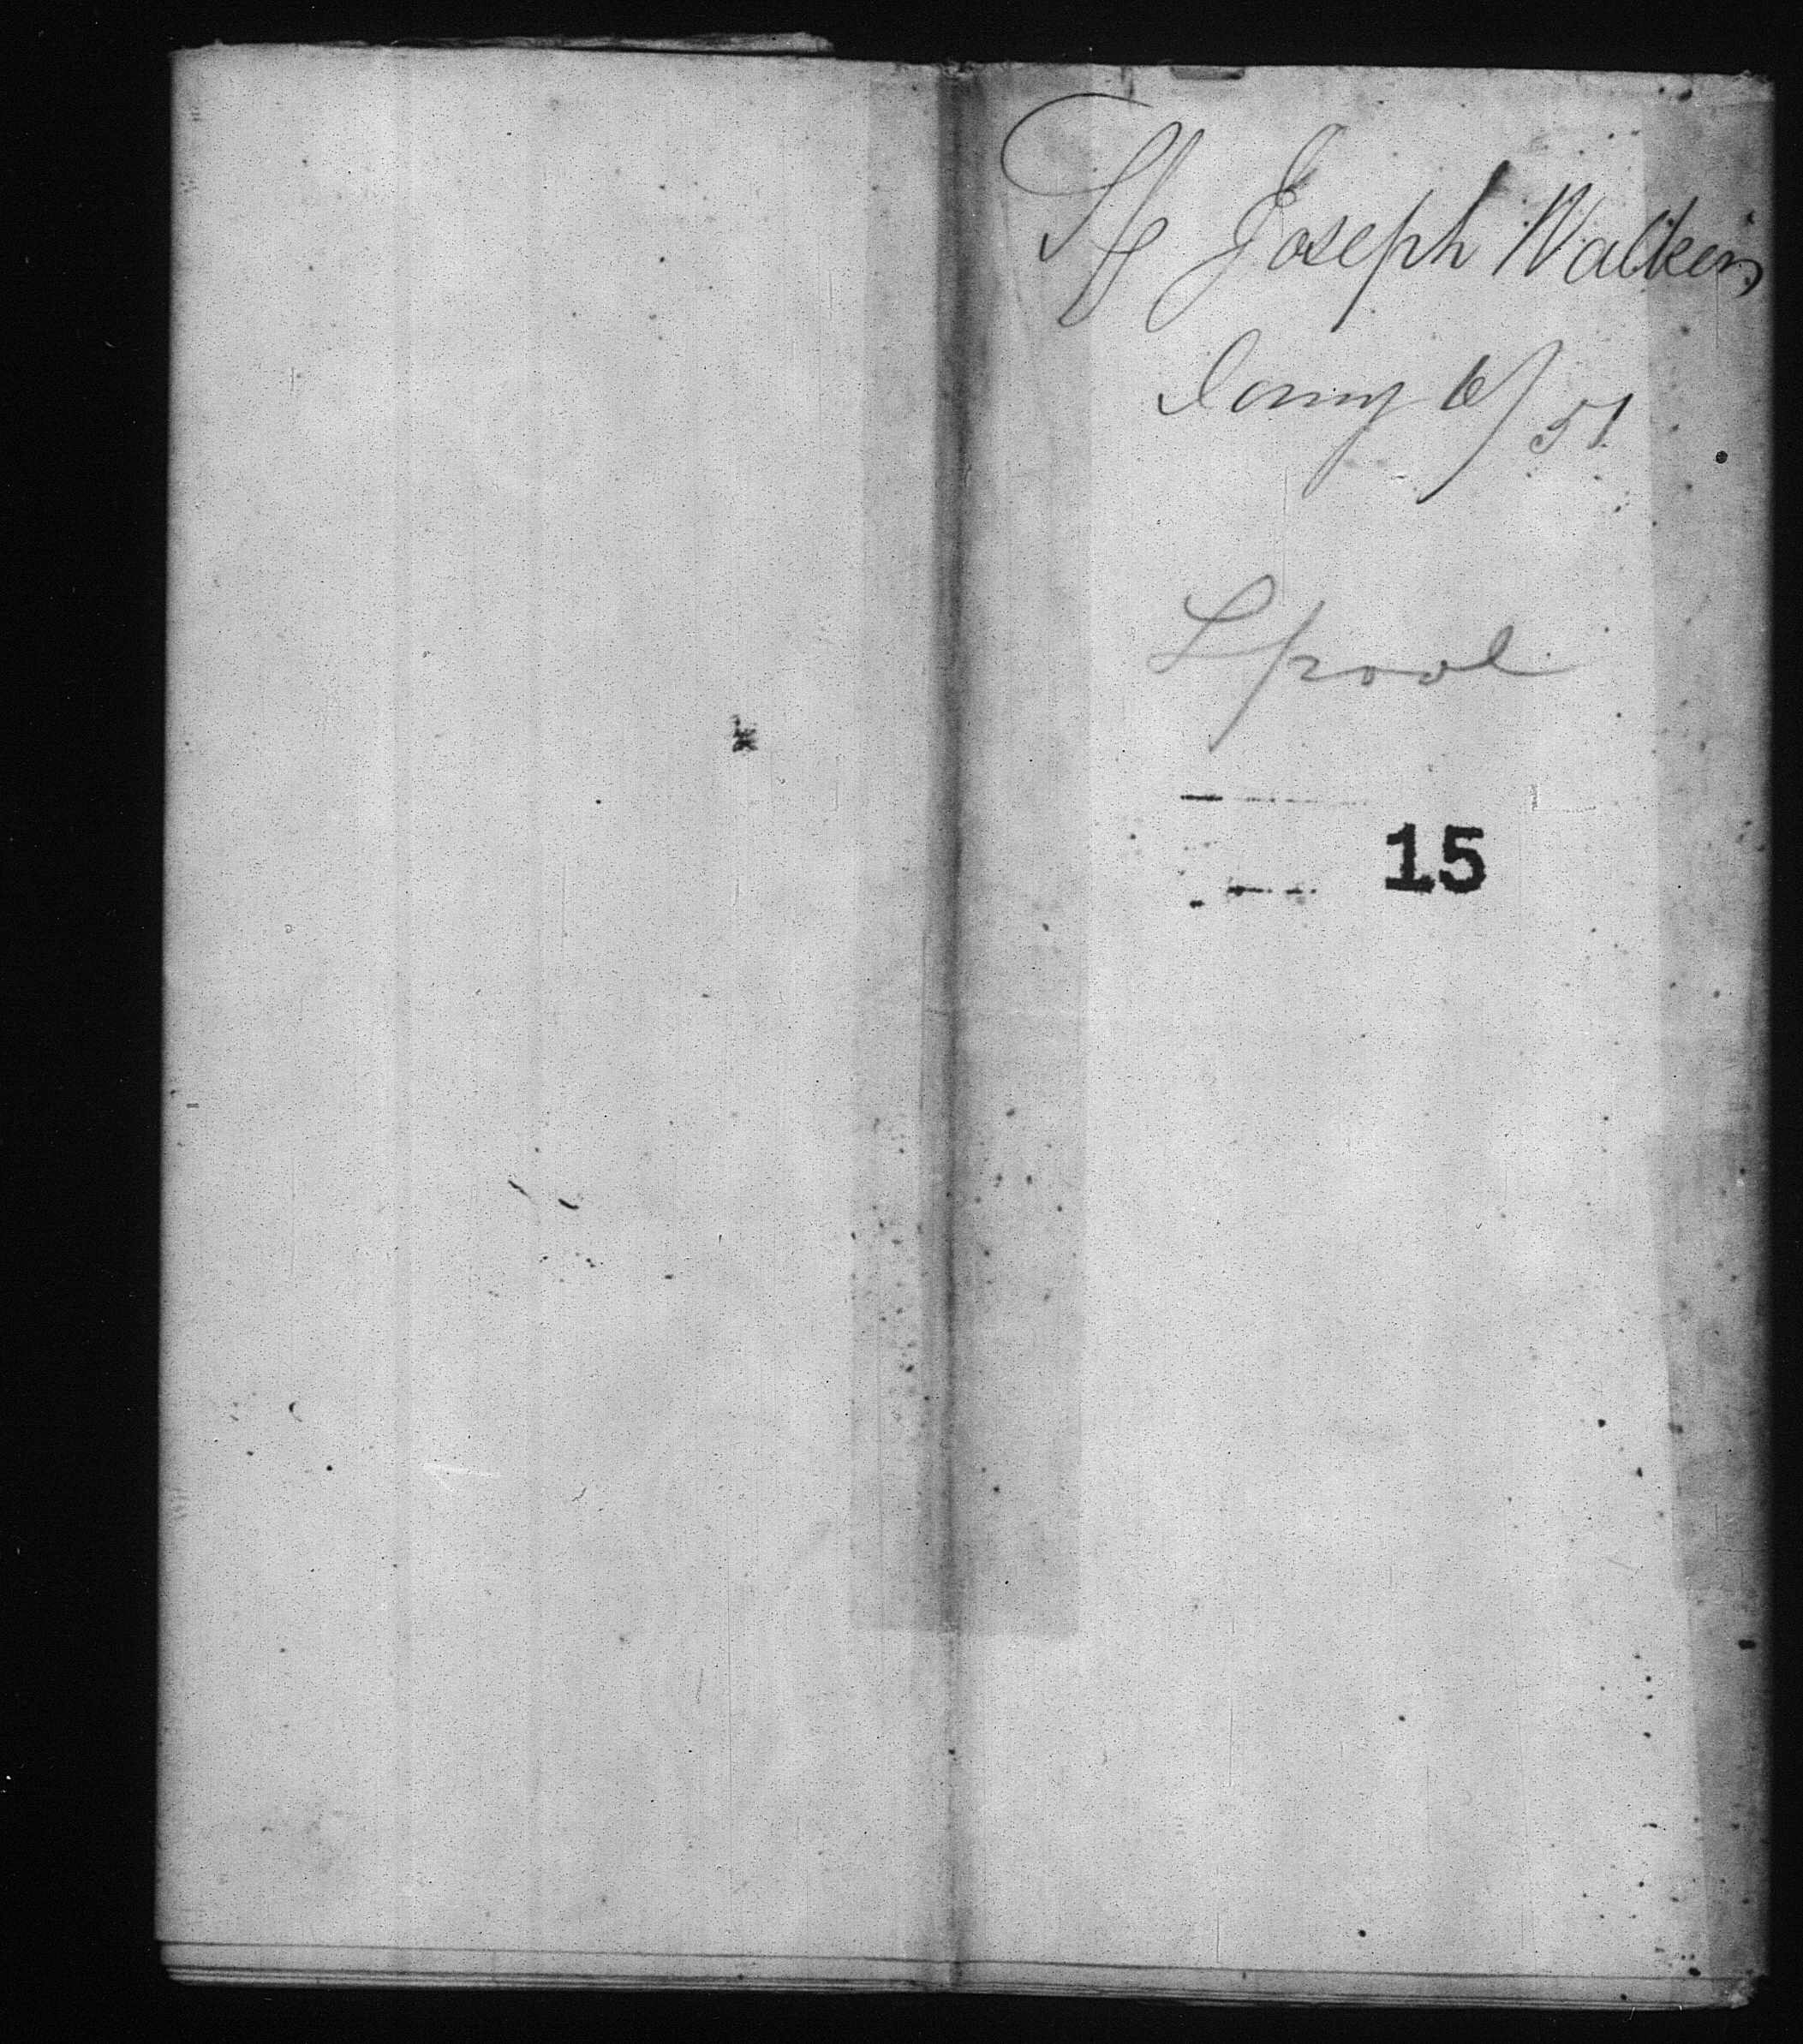 Sp Joseph Walker
Jany 6/51
Lpool
15